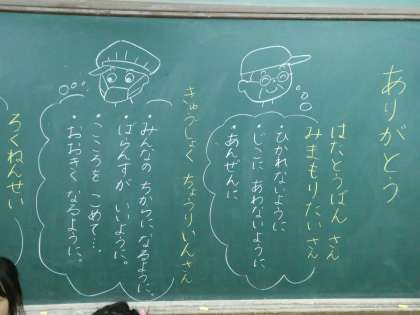 ありがとう
はたとうばん さん
みまもりたい さん
・ひかれないように
・じこに あわないように
・あんぜんに
きゅうしょく ちょうりいんさん
・みんなの ちからに なるように。
・ばらんすが いいように。
・こころを こめて…。
・おおきく なるように。
ろくねんせい